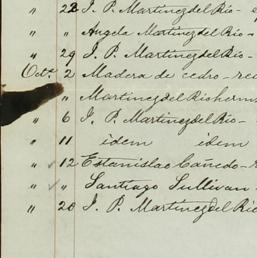 " 23 J. P. Martinez del Rio -
" " Angela Martinez del Rio -
" 29 J. P. Martinez del Rio -
Oct.e 2 Madera de cedro -
" " Martinez del Rio herm
" 6 J. P. Martinez del Rio -
" 11 idem idem
" 12 Estanislao Cañedo -
" " Santiago Sullivan
" 20 J. P. Martinez del Rio